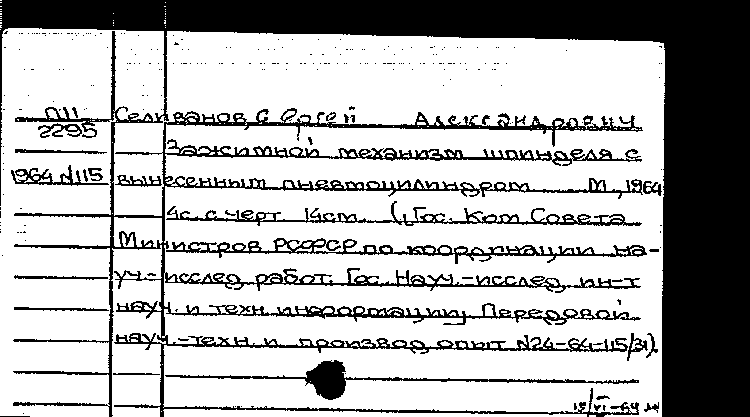 П11 Селиванов, Сергей Александрович
2295
Зажимной механизм шпинделя с
1964 N115 вынесенным пневмоцилиндром М, 1964
4с. с черт. 14см. (Гос. Ком Совета
Министров РСФСР по координации на-
уч.-исслед. работ. Гос. Науч.-исслед. ин-т
науч. и техн. информации. Передовой
науч.-техн. и производ. опыт N24-64-115/31).
-64